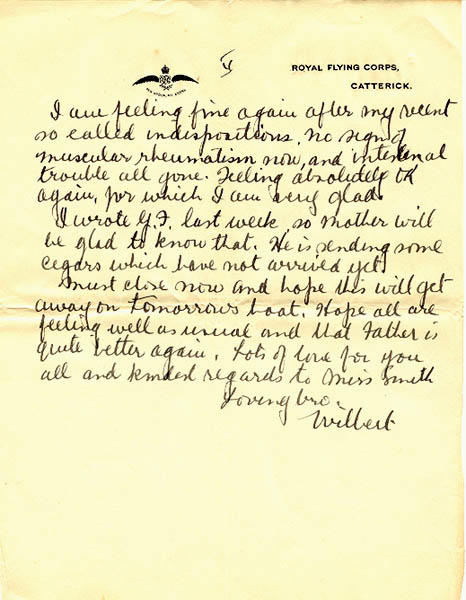 ROYAL FLYING CORPS,
CATTERICK.
I am feeling fine again after my recent
so called indispositions, no sign of
muscular rheumatism now, and internal
trouble all gone. Feeling absolutely OK
again, for which I am very glad.
I wrote G.F. last week so Mother will
be glad to know that. He is sending some
cigars which have not arrived yet.
Must close now and hope this will get
away on tomorrows boat. Hope all are
feeling well as usual and that Father is
quite better again. Lots of love for you
all and kindest regards to Miss Smith
Loving bro.
Wilbert